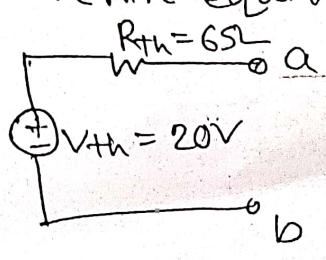 Rth=6Ω
a
+
-
Vth = 20V
b